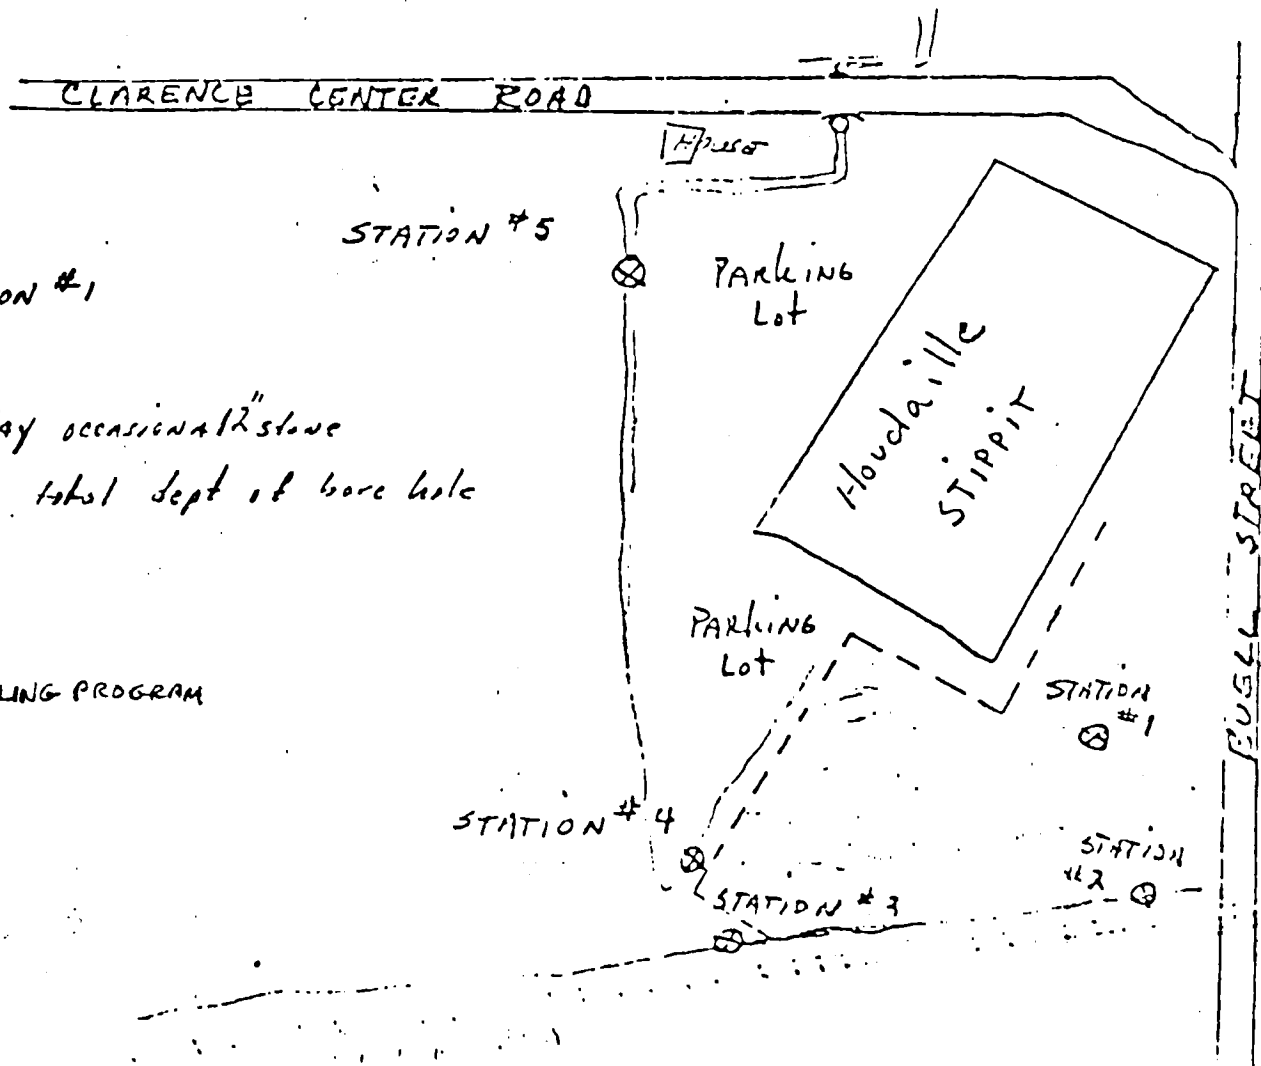 CLARENCE CENTER ROAD
House
STATION #5
ON #1
PARKING
Lot
Houdaille
STIPPIT
AY occasional 2" stone
total dept of bore hole
BUELL STREET
PARKING
Lot
LING PROGRAM
STATION
#1
STATION #4
STATION
#2
STATION #3